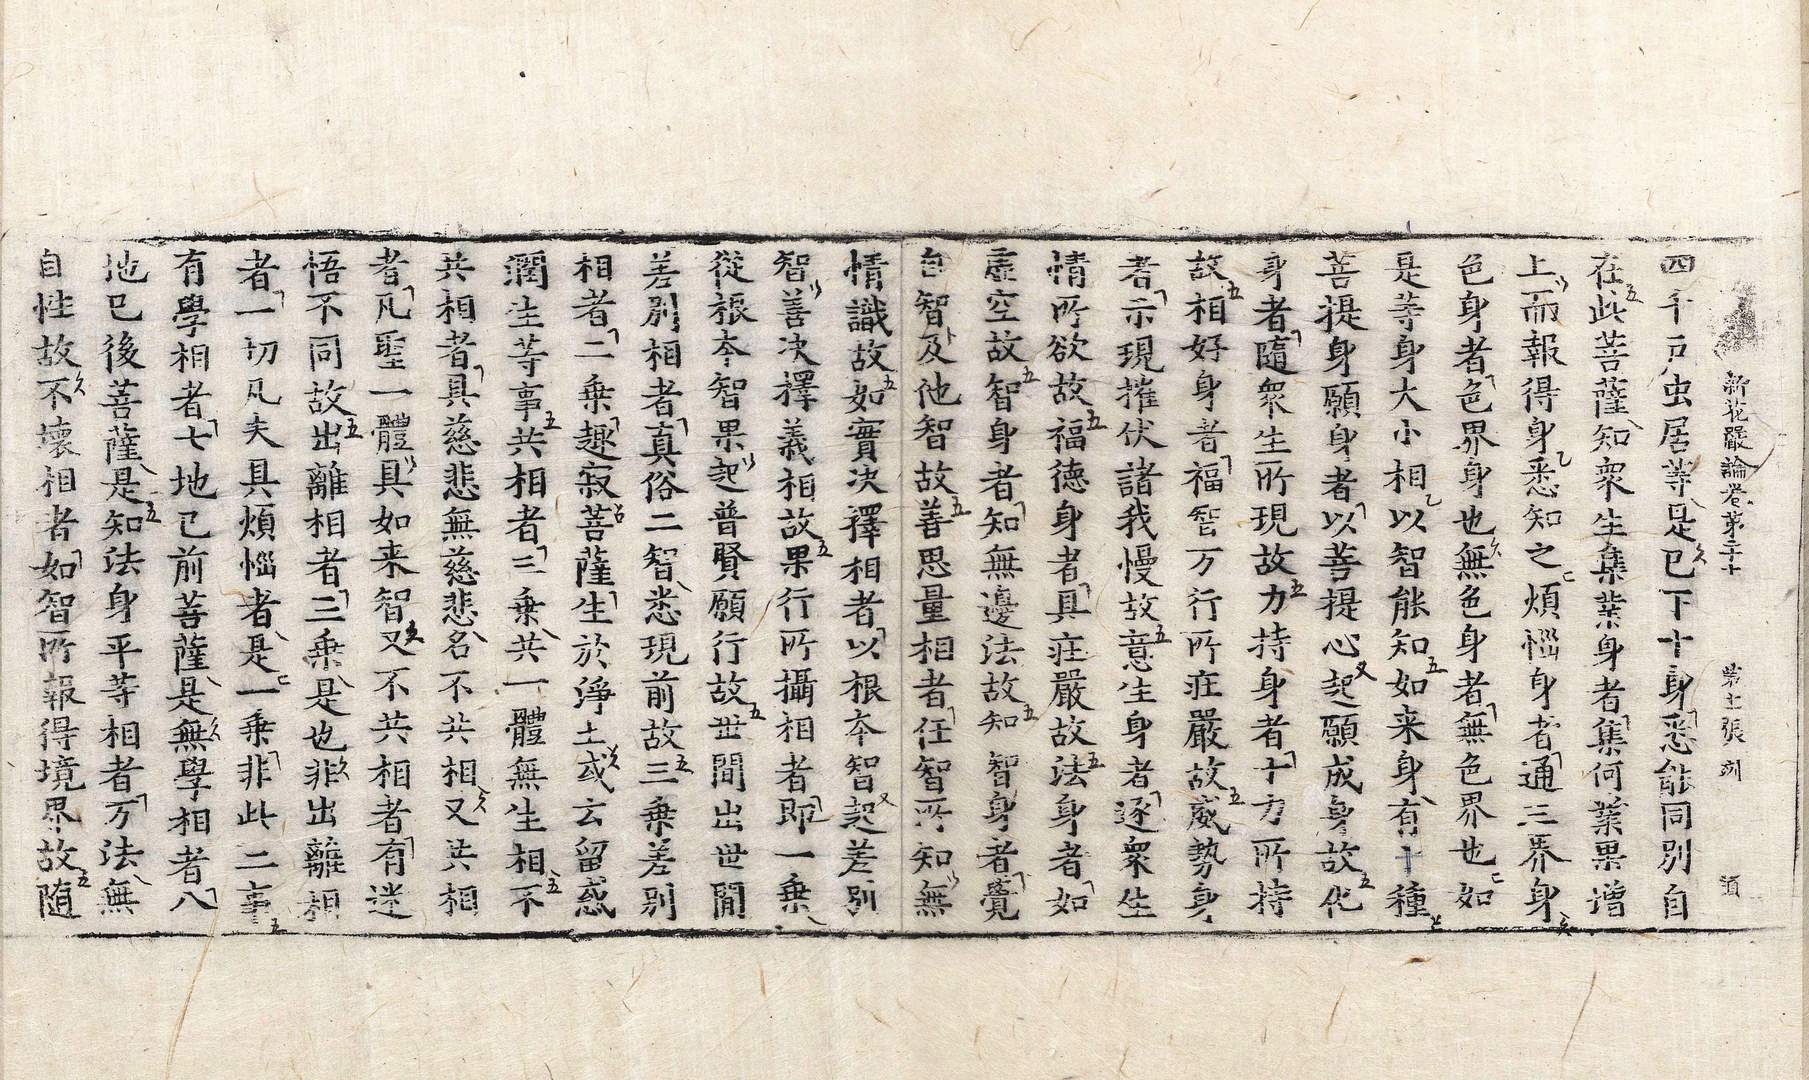 新花嚴論卷第二十 第十張 別 須
四千戶虫居等是已下十身悉能同別自
在此菩薩知衆生集業身者集何業果增
上而報得身悉知之煩惱身者通三界身
色身者色界身也無色身者無色界也如
是等身大小相以智能知如来身有十種
菩提身願身者以菩提心起願成身故化
身者隨衆生所現故力持身者十方所持
故相好身者福智万行所莊嚴故威勢身
者示現摧伏諸我慢故意生身者逐衆生
情所欲故福德身者具莊嚴故法身者如
虛空故智身者知無邊法故知智身者覺
自智及他智故善思量相者任智所知無
情識故如實決擇相者以根本智起差別
智善決擇義相故果行所攝相者即一乗
從根本智果起普賢願行故世間出世間
差別相者真俗二智悉現前故三乗差別
相者二乗趣寂菩薩生於淨土或云留惑
潤生等事共相者三乗共一體無生相不
共相者具慈悲無慈悲名不共相又共相
者凡聖一體具如来智又不共相者有迷
悟不同故出離相者三乗是也非出離相
者一切凡夫具煩惱者是一乗非此二事
有學相者七地已前菩薩是無學相者八
地已後菩薩是知法身平等相者万法無
自性故不壞相者如智所報得境界故随